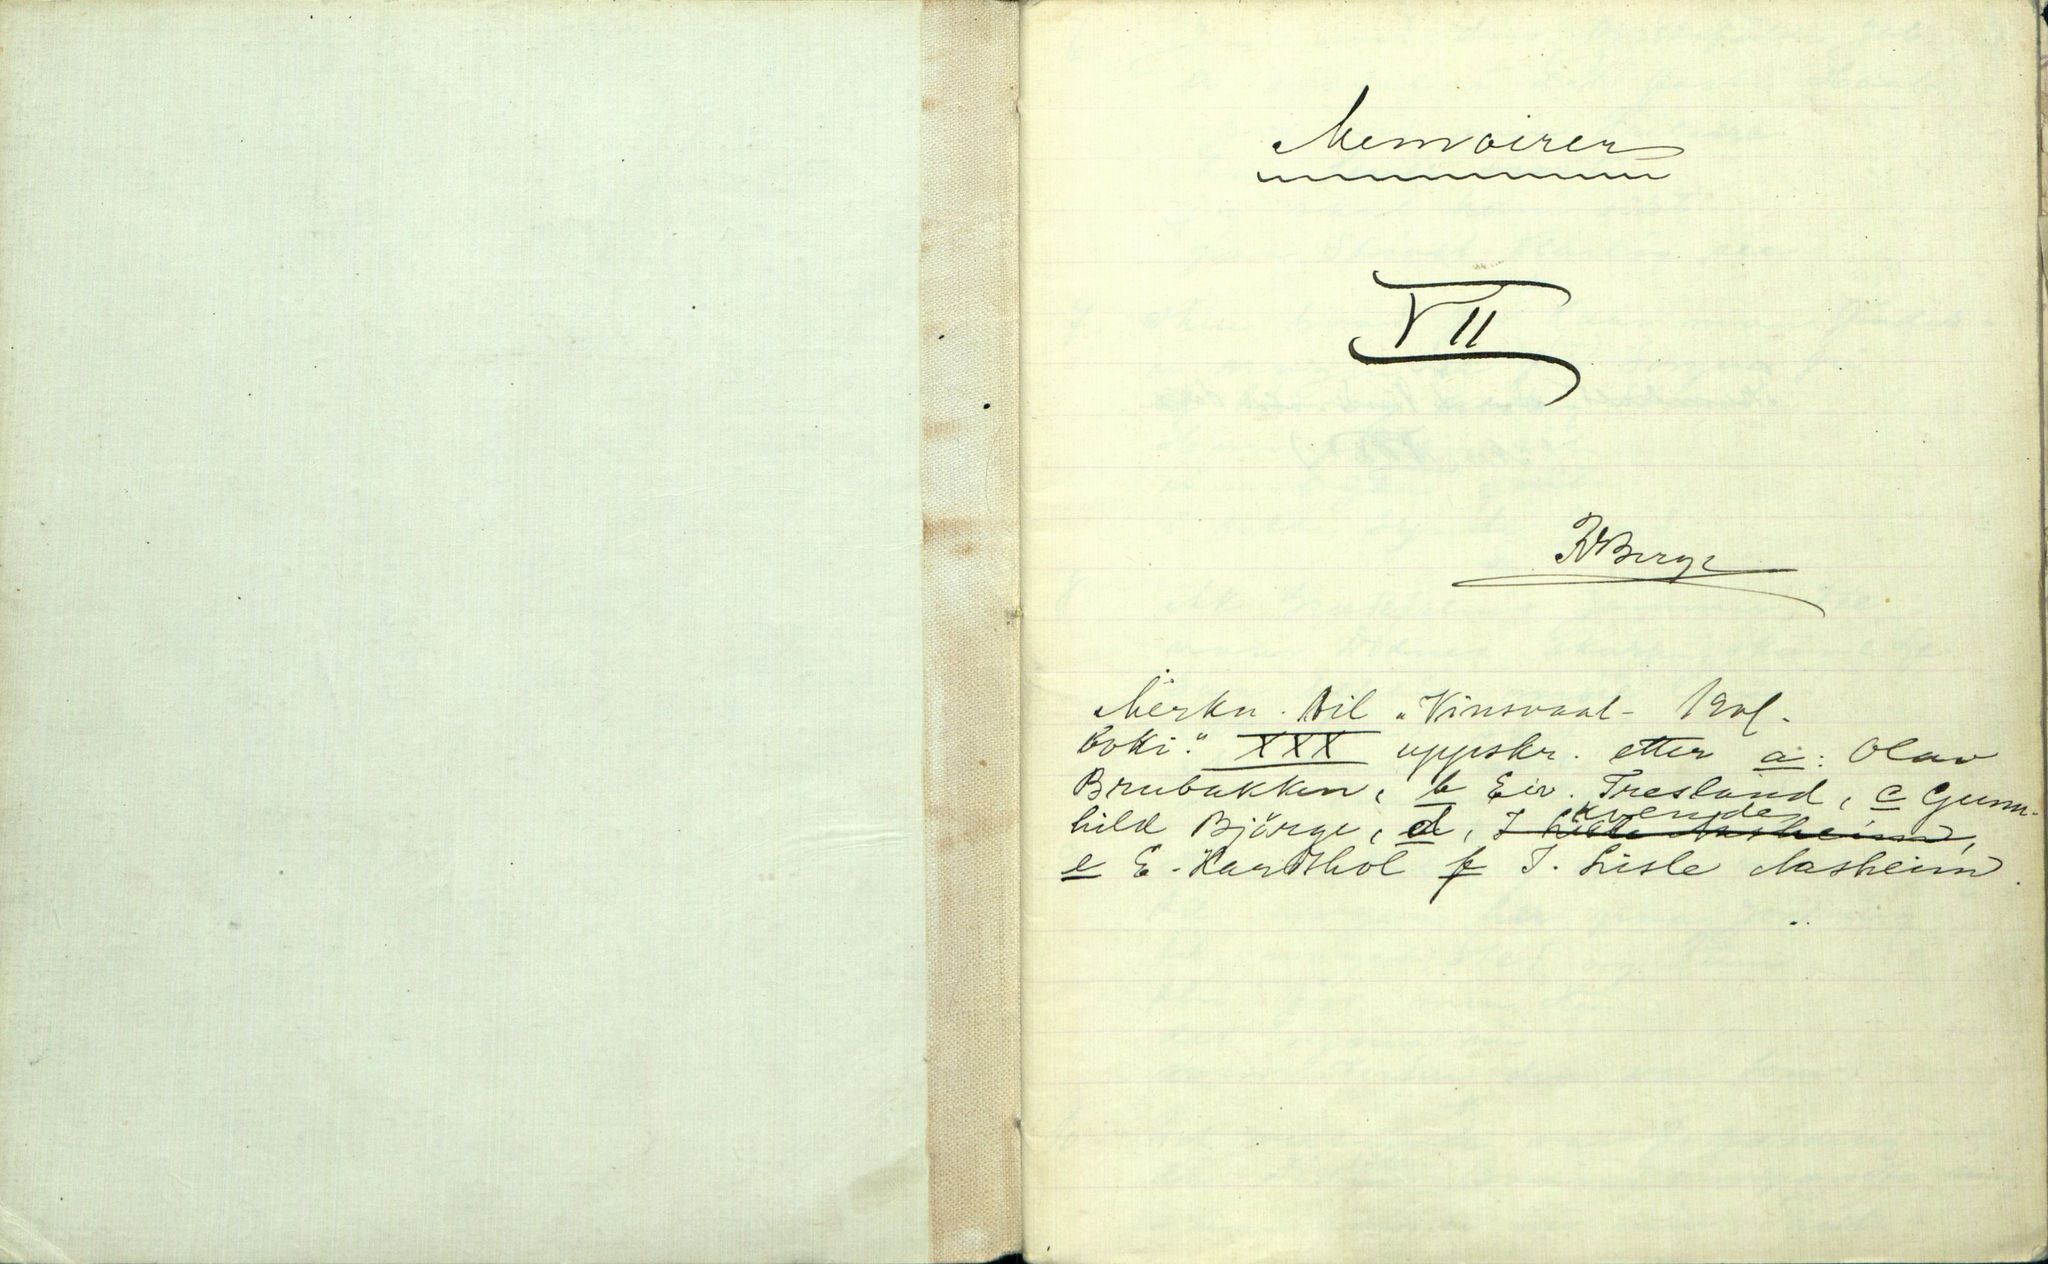 Memoirer
VII
RBerge
Merkn. til "Vinsvaal-
boki." XXX uppskr. etter a: Olav
Brubakken, b Eiv. Tresland, c Gunn-
hild Björge, d, kvende,
e E. Hardthol f T. Lisle Aasheim.